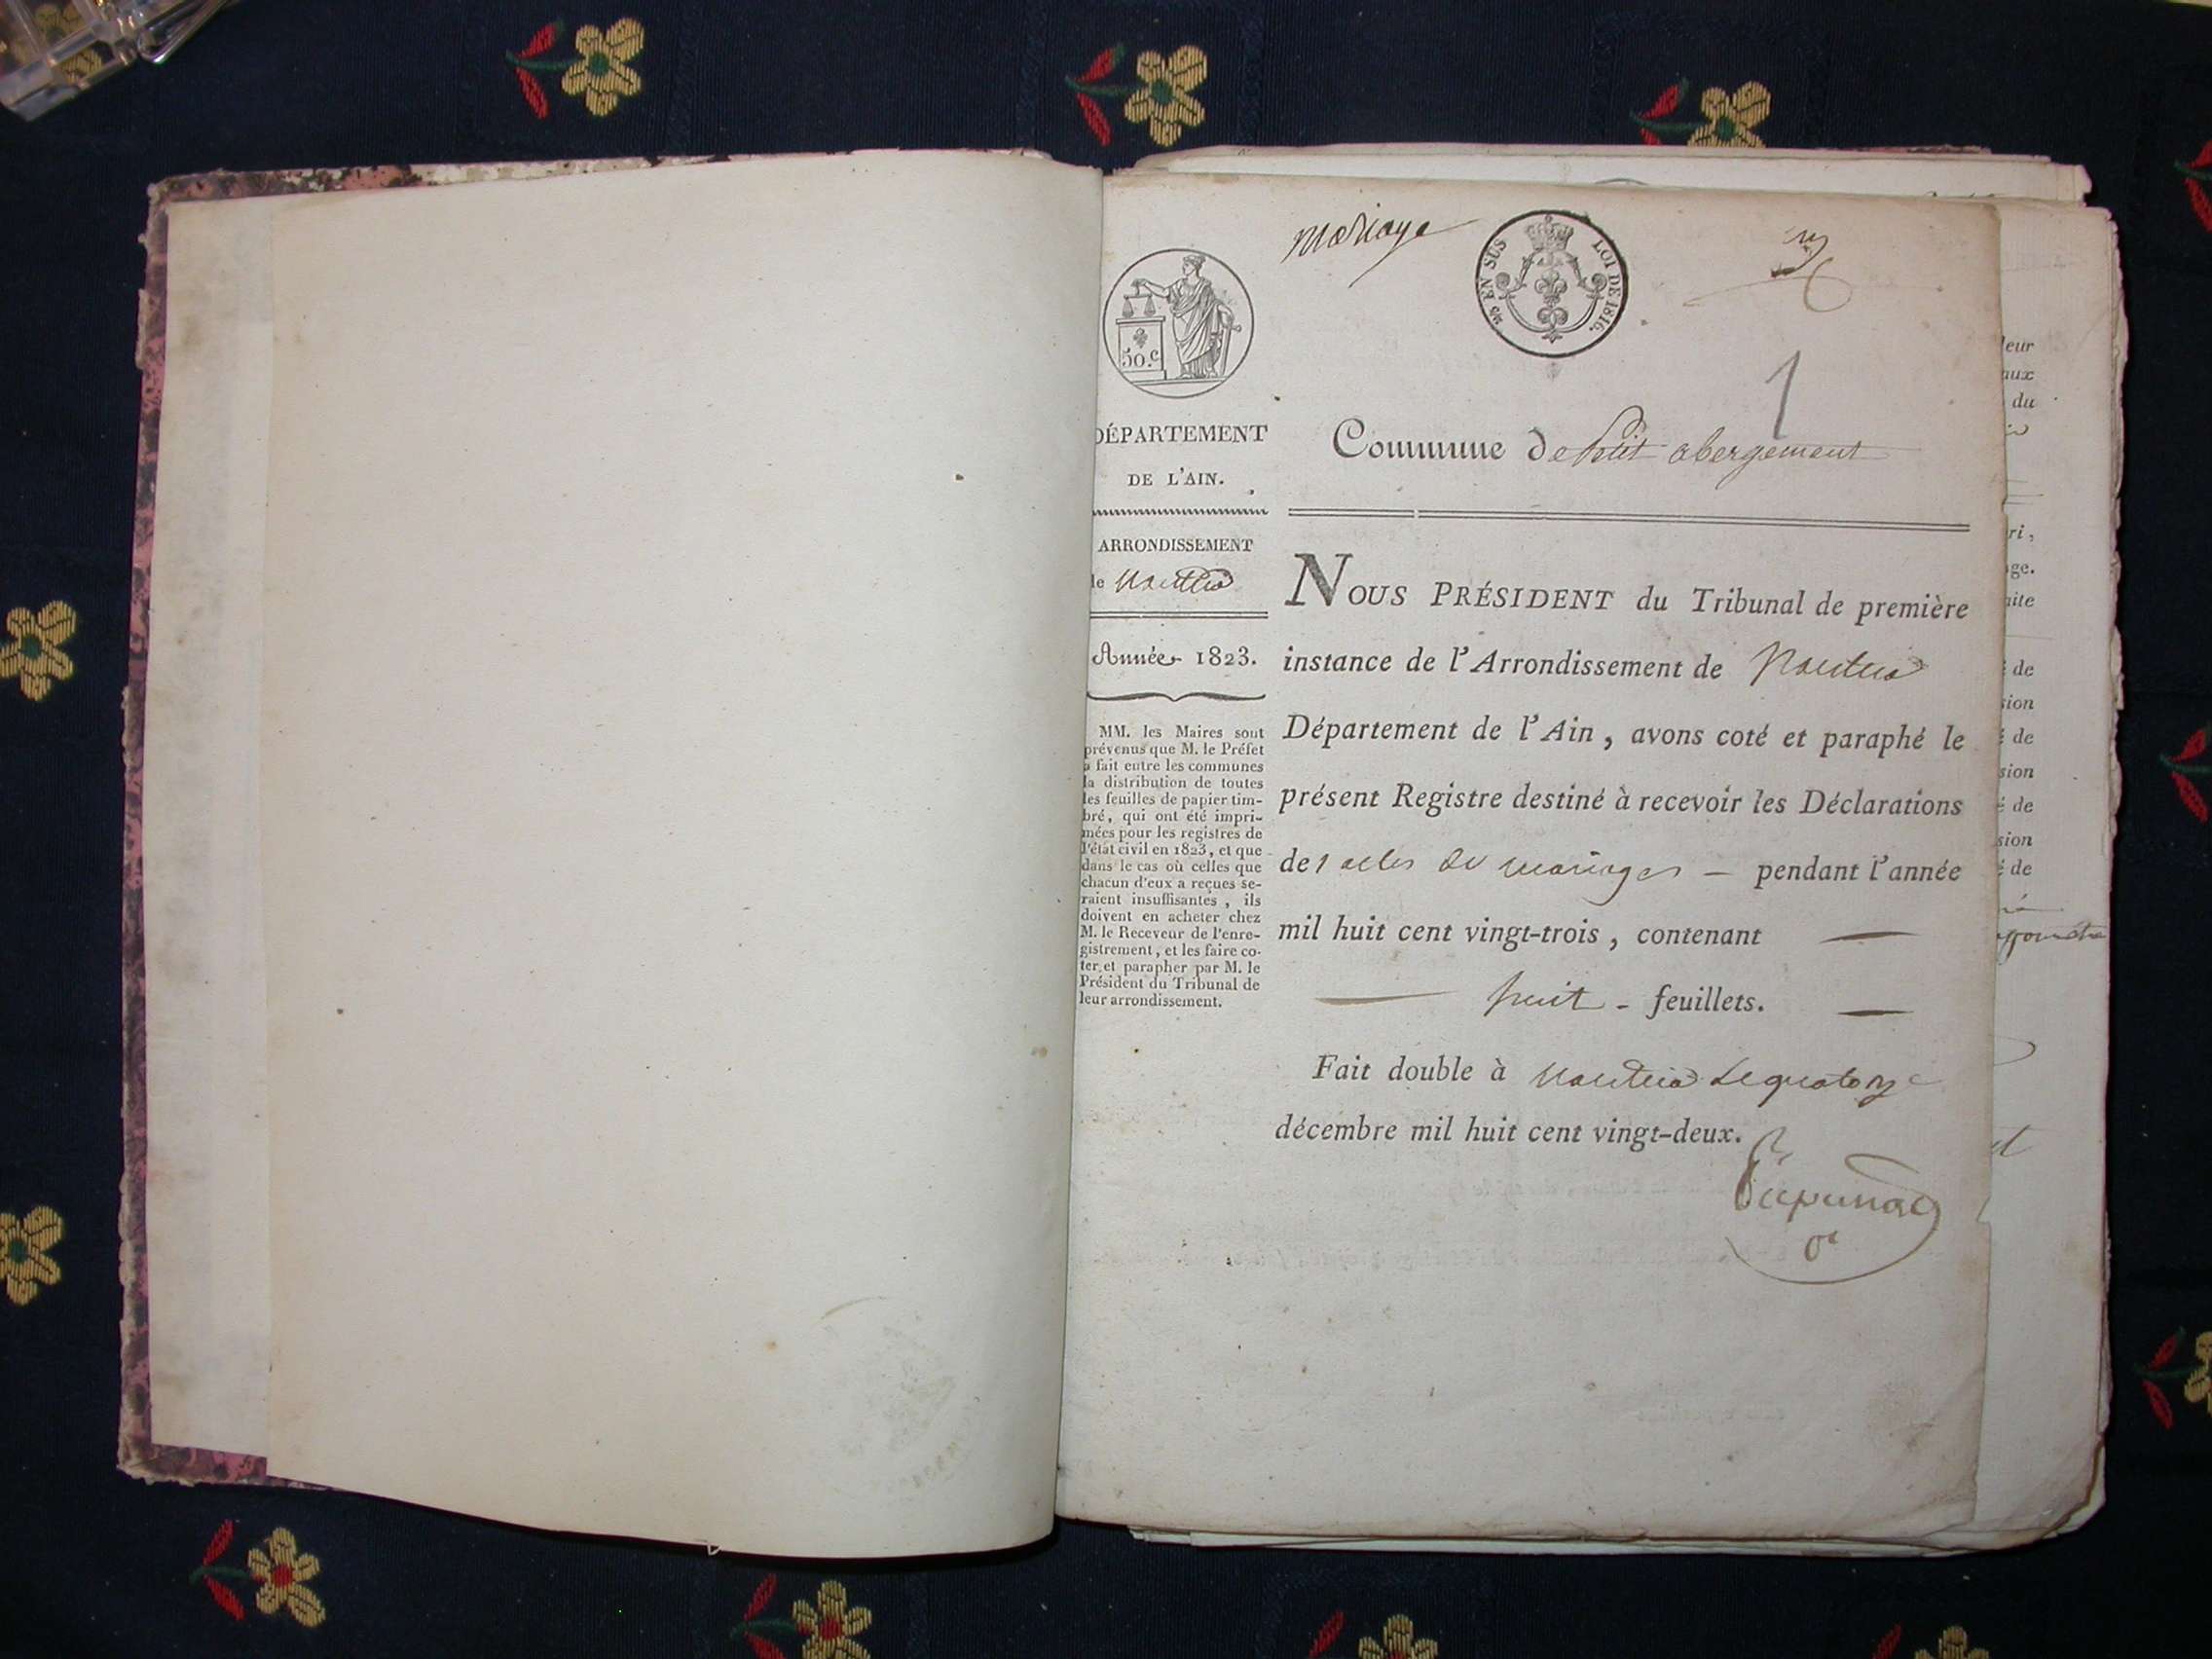 mariage
50.c
EN SUS LOI DE 1816.
DÉPARTEMENT
DE L'AIN.
ARRONDISSEMENT
de Nantua
Année 1823.
MM. les Maires sont
prévenus que M. le Préfet
a fait entre les communes
la distribution de toutes
les feuilles de papier tim-
bré, qui ont été impri-
mées pour les registres de
l'état civil en 1823, et que
dans le cas où celles que
chacun d'eux a reçues se-
raient insuffisantes, ils
doivent en acheter chez
M. le Receveur de l'enre-
gistrement, et les faire co-
ter et parapher par M. le
Président du Tribunal de
leur arrondissement.
1
Commune de Petit abergement
NOUS PRÉSIDENT du Tribunal de première
instance de l'Arrondissement de Nantua
Département de l'Ain, avons coté et paraphé le
présent Registre destiné à recevoir les Déclarations
des actes de mariages — pendant l'année
mil huit cent vingt-trois, contenant —
— huit - feuillets. —
Fait double à Nantua Le quatorze
décembre mil huit cent vingt-deux.
leur
aux
du
ri,
ge.
aite
de
sion
é de
sion
é de
sion
é de